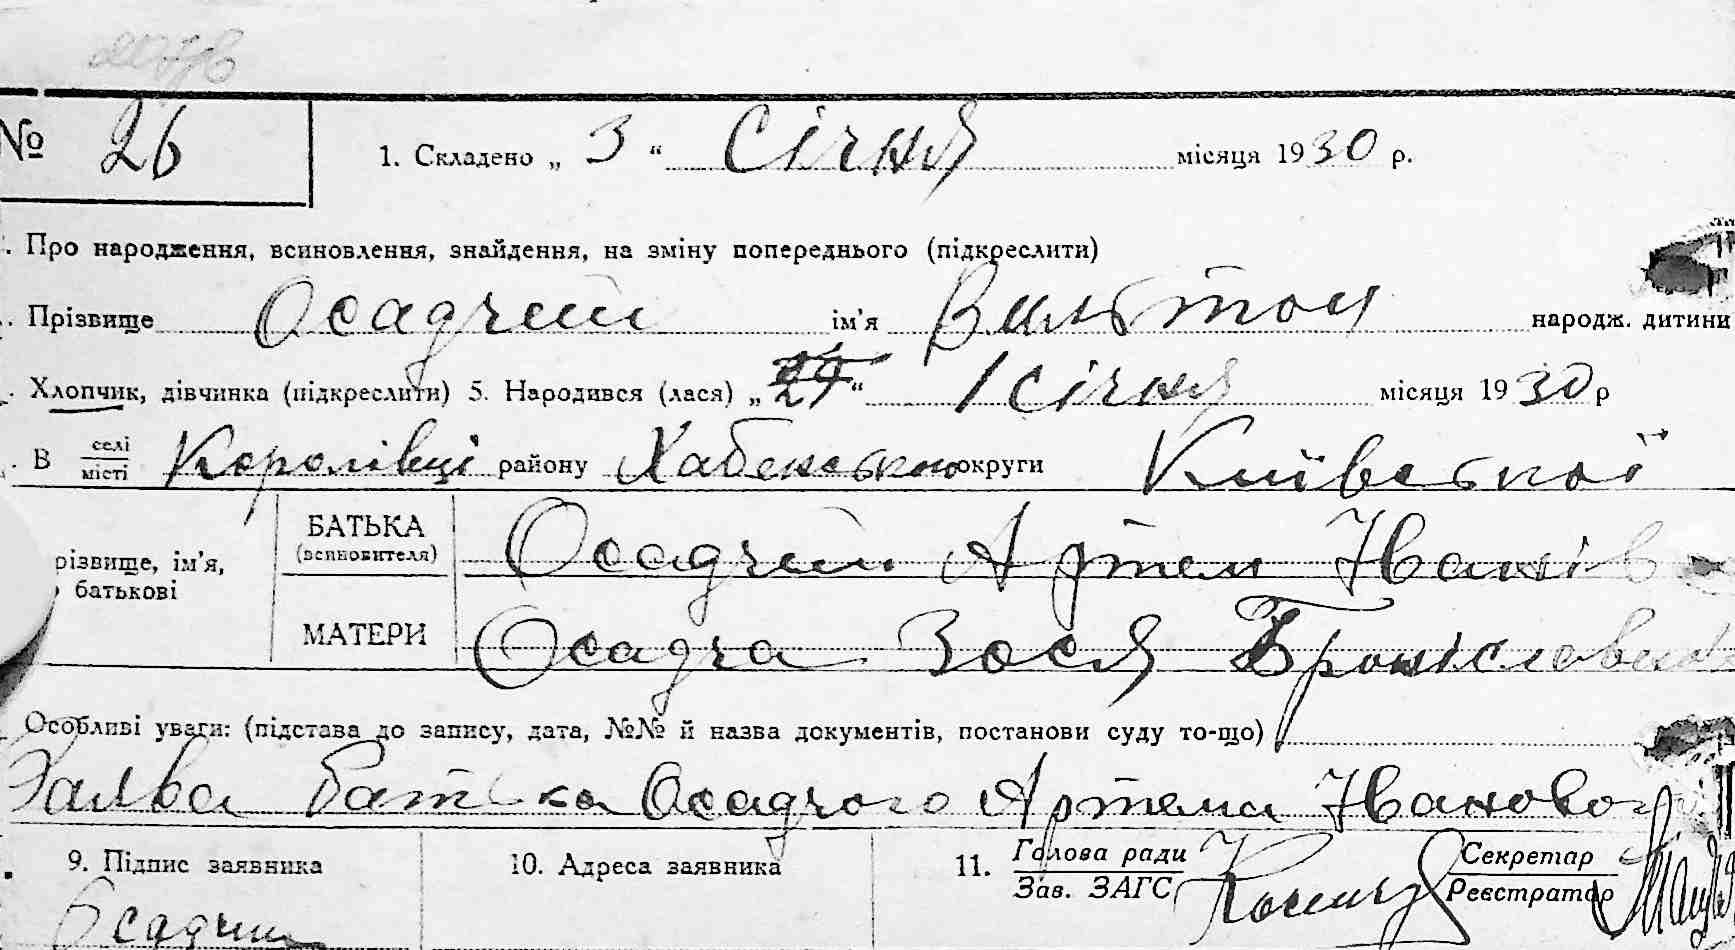 № 26
1. Складено „ 3 “ Січня місяця 1930 р.
. Про народження, всиновлення, знайдення, на зміну попереднього (підкреслити)
. Прізвище Осадчий ім’я Вильтон народж. дитини
. Хлопчик, дівчинка (підкреслити) 5. Народився (лася) „ 29 “ 1 січня місяця 1930 р
. В селі місті Королівці району Хабенського округи Київської
різвище, ім’я, батькові
БАТЬКА (всиновителя) Осадчий Артем Іванів
МАТЕРИ Осадча Зося Броніславів
Особливі уваги: (підстава до запису, дата, №№ й назва документів, постанови суду то-що)
Заява батька Осадчого Артема Іванового
9. Підпис заявника 10. Адреса заявника 11. Голова ради Зав. ЗАГС Секретар Реєстратор
Осадчий